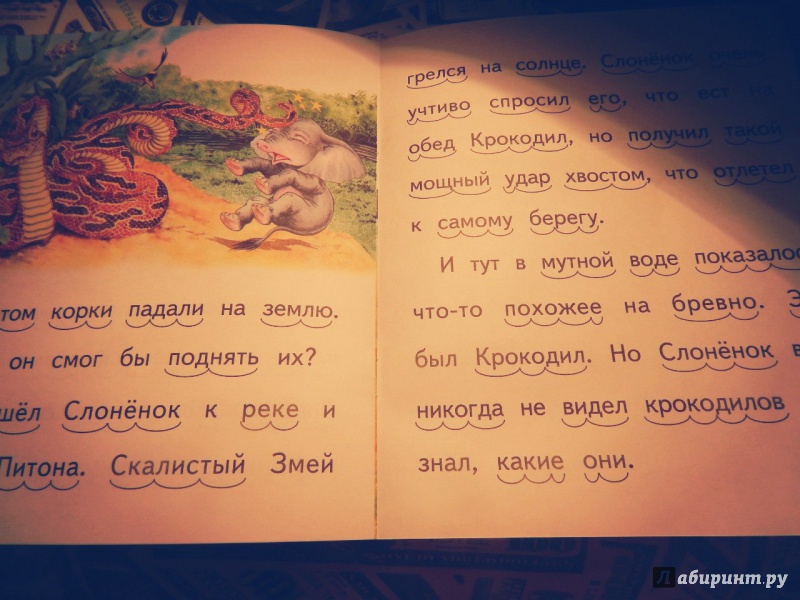 том корки падали на землю.
он смог бы поднять их?
шёл Слонёнок к реке и
Питона. Скалистый Змей
грелся на солнце. Слонёнок очень
учтиво спросил его, что ест на
обед Крокодил, но получил такой
мощный удар хвостом, что отлетел
к самому берегу.
И тут в мутной воде показалос
что-то похожее на бревно. Э
был Крокодил. Но Слонёнок
никогда не видел крокодилов
знал, какие они.
Лабиринт.ру